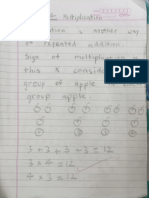 Multiplication
Multiplication is another way
of repeated addition.
Sign of multiplication is
this X consider
group of apple
group apple.
3 + 3 + 3 + 3 = 12
3 × 4 = 12
4 × 3 = 12